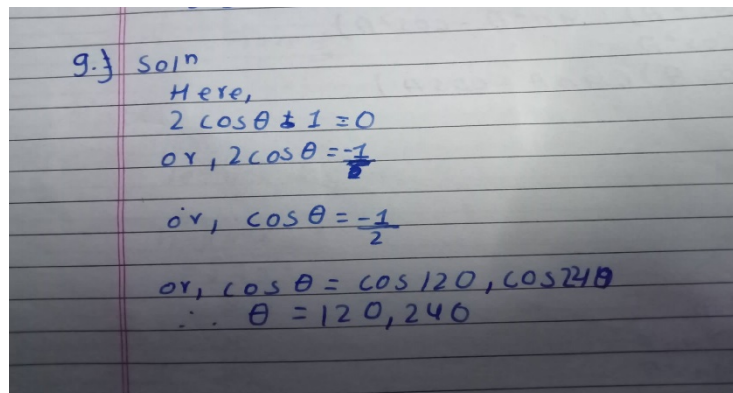 9.} Soln
Here,
2 cosθ + 1 = 0
or, 2cosθ = -1
or, cosθ = -1/2
or, cosθ = cos120, cos240
∴ θ = 120, 240